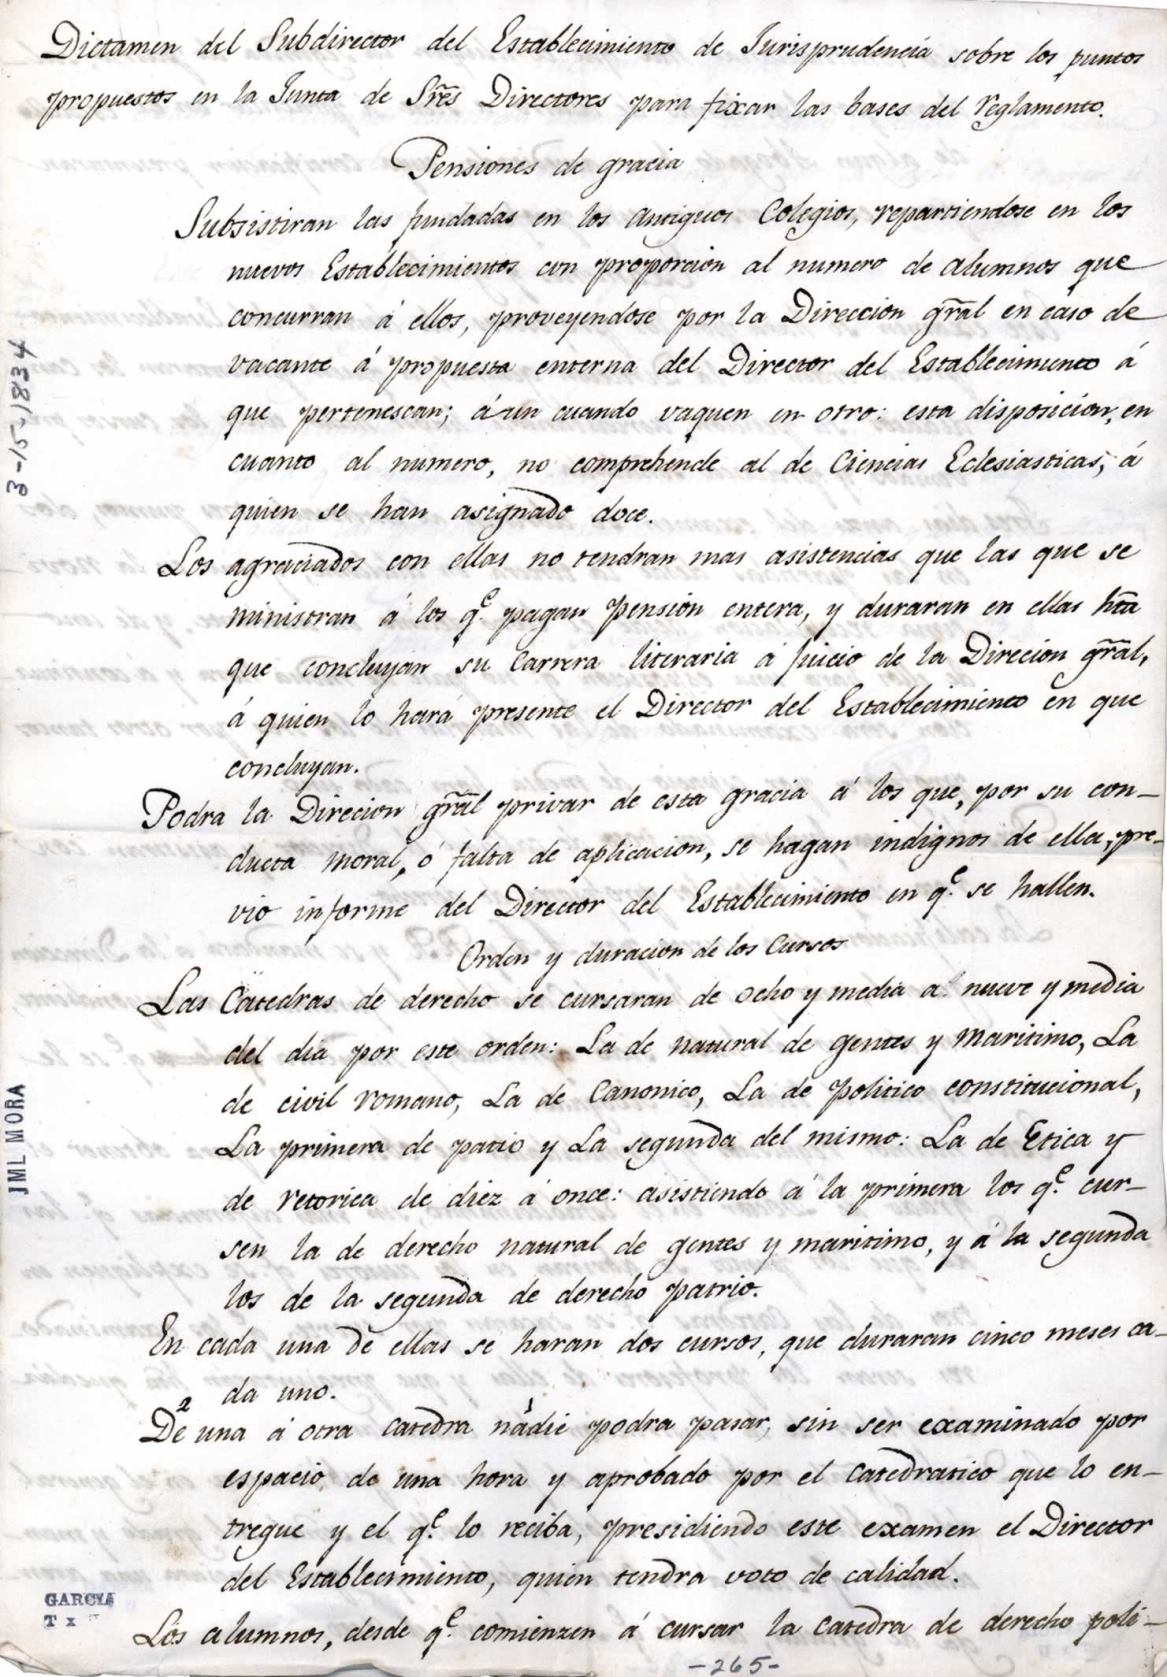 Dictamen del Subdirector del Establecimiento de Jurisprudencia sobre los puntos
propuestos en la Junta de Sres Directores para fixar las bases del Reglamento.
Pensiones de gracia
Subsistiran las fundadas en los antiguos Colegios, repartiendose en los
nuevos Establecimientos con proporcion al numero de alumnos que
concurran á ellos, proveyendose por la Direccion gral en caso de
vacante á propuesta enterna del Director del Establecimiento á
que pertenescan; áun cuando vaquen en otro: esta disposicion, en
cuanto al numero, no comprehende al de Ciencias Eclesiasticas, á
quien se han asignado doce.
Los agraciados con ellas no tendran mas asistencias que las que se
ministran á los qe. pagan pension entera, y duraran en ellas hta
que concluyan su carrera literaria á juicio de la Direcion gral,
á quien lo hará presente el Director del Establecimiento en que
concluyan.
Podra la Direcion gral privar de esta gracia á los que, por su con-
ducta moral, ó falta de aplicacion, se hagan indignos de ella, pre-
vio informe del Director del Establecimiento en qe. se hallen.
Orden y duracion de los Cursos
Las Catedras de derecho se cursaran de ocho y media a nueve y media
del dia por este orden: La de natural de gentes y maritimo, La
de civil romano, La de Canonico, La de politico constitucional,
La primera de patio y La segunda del mismo: La de Etica y
de retorica de diez á once: asistiendo á la primera los qe. cur-
sen la de derecho natural de gentes y maritimo, y á la segunda
los de la segunda de derecho patrio.
En cada una de ellas se haran dos cursos, que duraran cinco meses ca-
da uno.
2
De una á otra catedra nadie podra pasar, sin ser examinado por
espacio de una hora y aprobado por el catedratico que lo en-
tregue y el qe. lo reciba, presidiendo este examen el Director
del Establecimiento, quien tendra voto de calidad.
Los alumnos, desde qe. comienzen á cursar la catedra de derecho poli-
-265-
3-15-1834
JML MORA
GARCIA